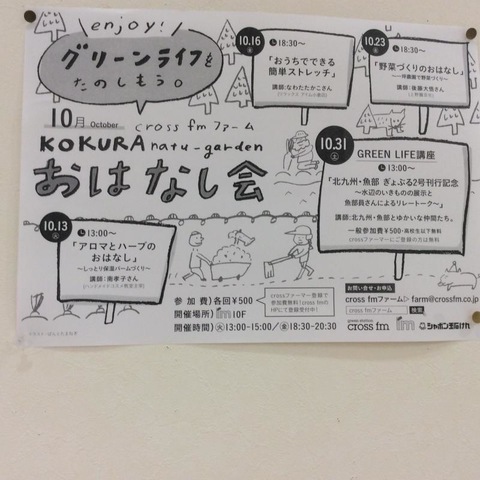 enjoy!
グリーンライフを
たのしもう。
10月 October
cross fm ファーム
KOKURA natu-garden
おはなし会
10.13
13:00〜
「アロマとハーブの
おはなし」
〜しっとり保湿バームづくり〜
講師：南孝子さん
10.16
18:30〜
「おうちでできる
簡単ストレッチ」
講師：なわたたかこさん
10.23
18:30〜
「野菜づくりのおはなし」
〜一坪農園で野菜づくり〜
講師：後藤大悟さん
10.31
土
GREEN LIFE講座
13:00〜
「北九州・魚部 ぎょぶる2号刊行記念
〜水辺のいきものの展示と
魚部員さんによるリレートーク〜」
講師：北九州・魚部とゆかいな仲間たち。
一般参加費¥500・高校生以下無料
crossファーマーにご登録の方は無料
参加費）各回¥500
開催場所）im 10F
開催時間）火13:00-15:00／金18:30-20:30
crossファーマー登録で
参加費無料！cross fmの
HPにて登録受付中！
お問い合せ・お申込
cross fmファーム▷ farm@crossfm.co.jp
cross fmファーム 検索
cross fm
im
シャボン玉石けん